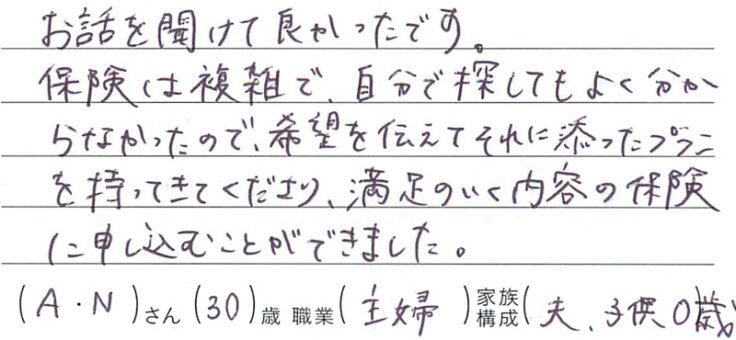 お話を聞けて良かったです。
保険は複雑で、自分で探してもよく分か
らなかったので、希望を伝えてそれに添ったプラン
を持ってきてくださり、満足のいく内容の保険
に申し込むことができました。
(A・N)さん (30)歳 職業(主婦)家族構成(夫、子供0歳)